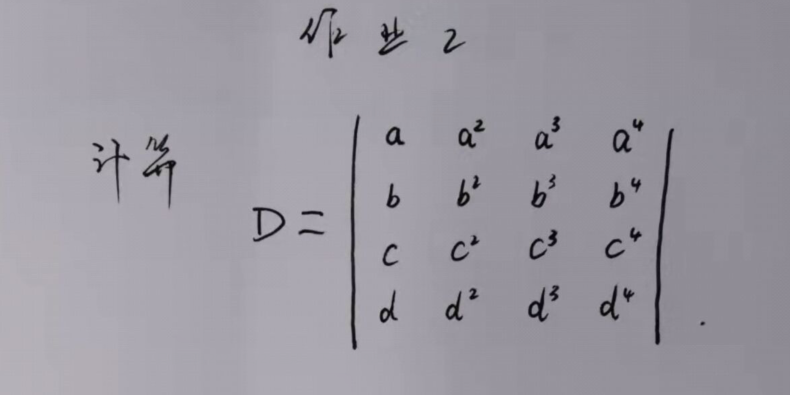 作业2
计算
D = | a a² a³ a⁴ |
| b b² b³ b⁴ |
| c c² c³ c⁴ |
| d d² d³ d⁴ | .